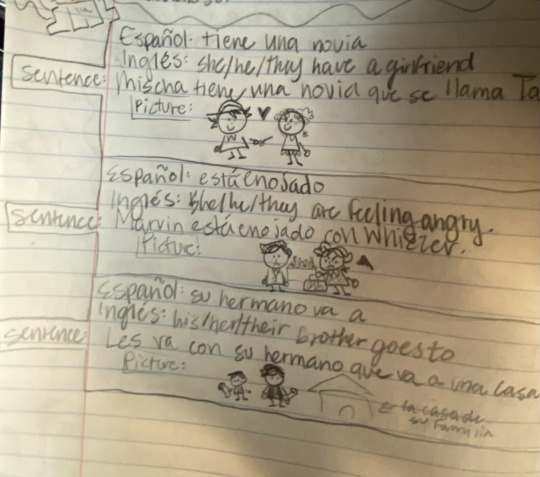 Español: tiene una novia
Inglés: she/he/they have a girlfriend
Sentence: Mischa tiene una novia que se llama Ta
Picture:
Español: está enojado
Inglés: she/he/they are feeling angry.
Sentence: Marvin está enojado con Whizzer.
Picture:
Español: su hermano va a
Inglés: his/her/their brother goes to
Sentence: Les va con su hermano que va a una casa
Picture:
la casa de
su familia